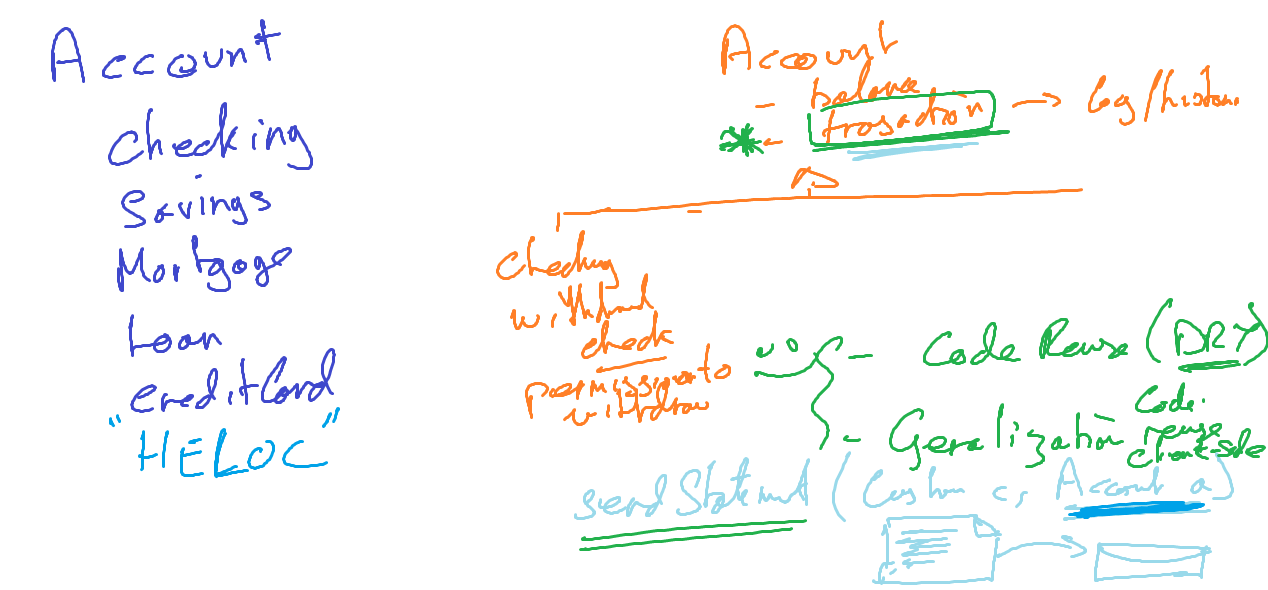 Account
Checking
Savings
Mortgage
Loan
CreditCard
"HELOC"
Account
- balance
* - trosaction → log/histor.
Checking
withdrawl
check
permission to
withdraw
- Code Reuse (DRY)
- Geralization
Code.
reuse
client-side
send Statement (Custom c, Account a)